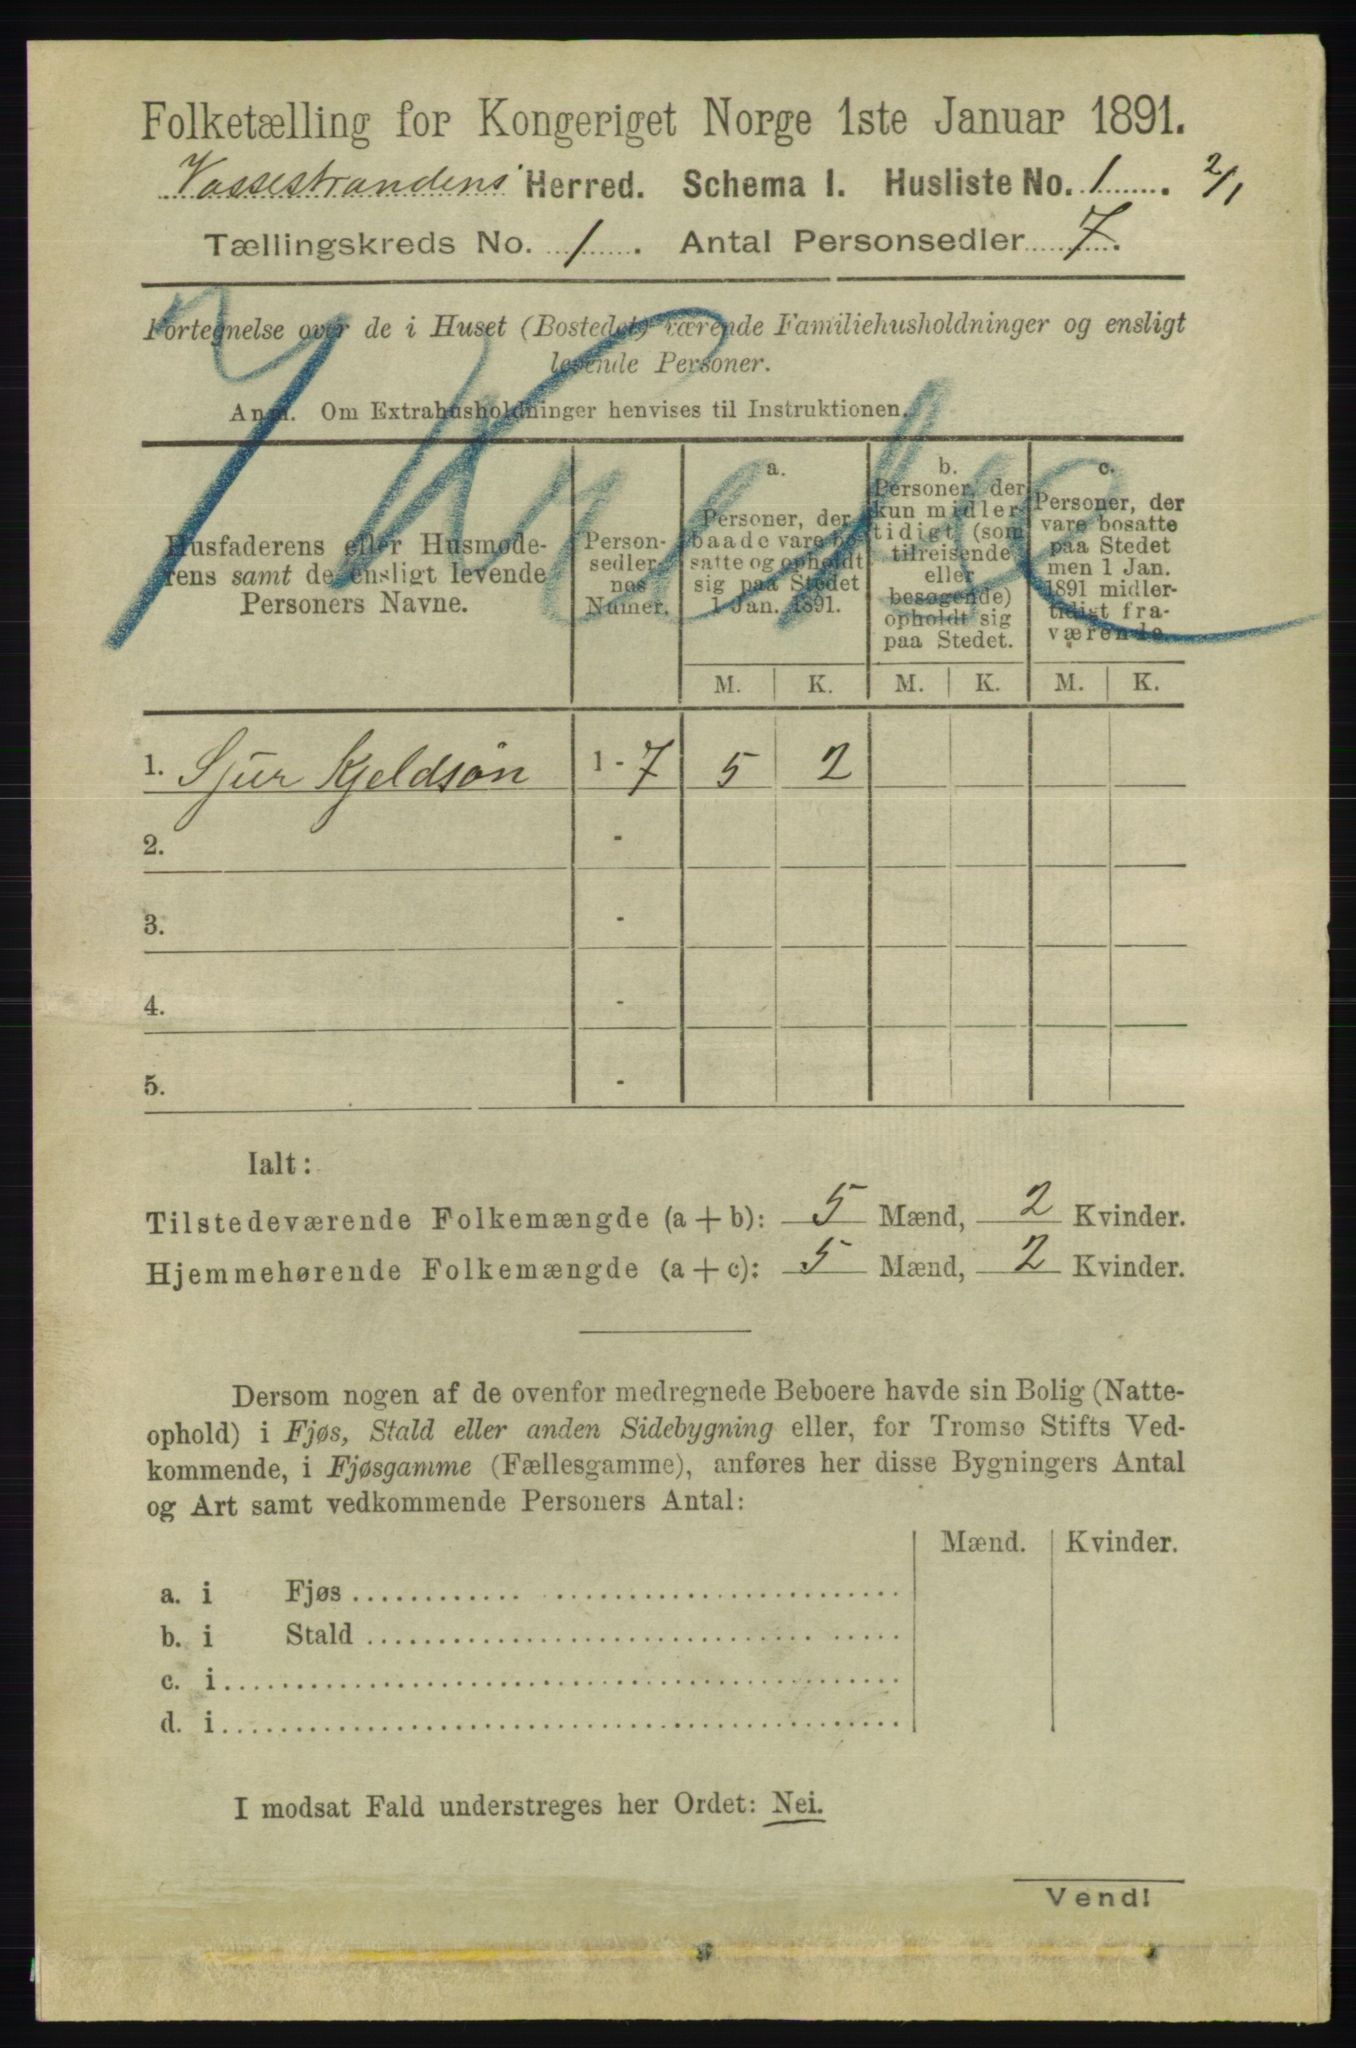 Folketælling for Kongeriget Norge 1ste Januar 1891.
Vossestrandens Herred. Schema I. Husliste No. 1. 2/1
Tællingskreds No. 1. Antal Personsedler 7.
Fortegnelse over de i Huset (Bostedet) værende Familiehusholdninger og ensligt
levende Personer.
Anm. Om Extrahusholdninger henvises til Instruktionen.
Husfaderens eller Husmode-
rens samt de ensligt levende
Personers Navne.
Person-
sedler-
nes
Numer.
a.
Personer, der
baade vare bo-
satte og opholdt
sig paa Stedet
1 Jan. 1891.
b.
Personer, der
kun midler-
tidigt (som
tilreisende
eller
besøgende)
opholdt sig
paa Stedet.
c.
Personer, der
vare bosatte
paa Stedet
men 1 Jan.
1891 midler-
tidigt fra-
værende.
M. K. M. K. M. K.
1. Sjur Kjeldsøn 1 - 7 5 2
2. -
3. -
4. -
5. -
Ialt:
Tilstedeværende Folkemængde (a + b): 5 Mænd, 2 Kvinder.
Hjemmehørende Folkemængde (a + c): 5 Mænd, 2 Kvinder.
Dersom nogen af de ovenfor medregnede Beboere havde sin Bolig (Natte-
ophold) i Fjøs, Stald eller anden Sidebygning eller, for Tromsø Stifts Ved-
kommende, i Fjøsgamme (Fællesgamme), anføres her disse Bygningers Antal
og Art samt vedkommende Personers Antal:
Mænd. Kvinder.
a. i Fjøs
b. i Stald
c. i
d. i
I modsat Fald understreges her Ordet: Nei.
Vend!